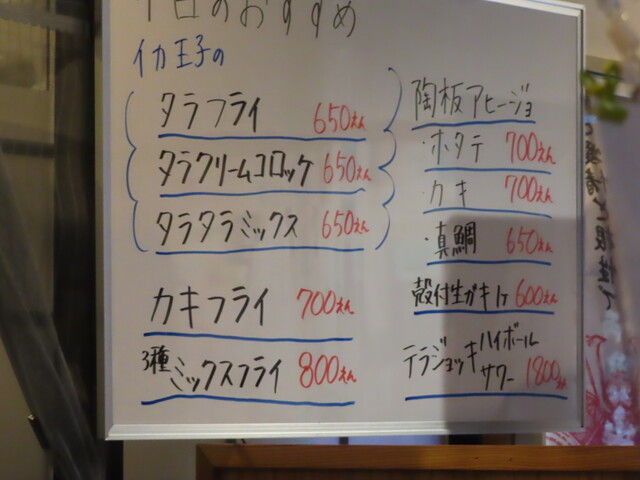 本日のおすすめ
イカ王子の
タラフライ 650えん
タラクリームコロッケ 650えん
タラタラミックス 650えん
カキフライ 700えん
3種ミックスフライ 800えん
陶板アヒージョ
・ホタテ 700えん
・カキ 700えん
・真鯛 650えん
殻付生ガキ1ヶ 600えん
テラジョッキ ハイボール
サワー 1800えん